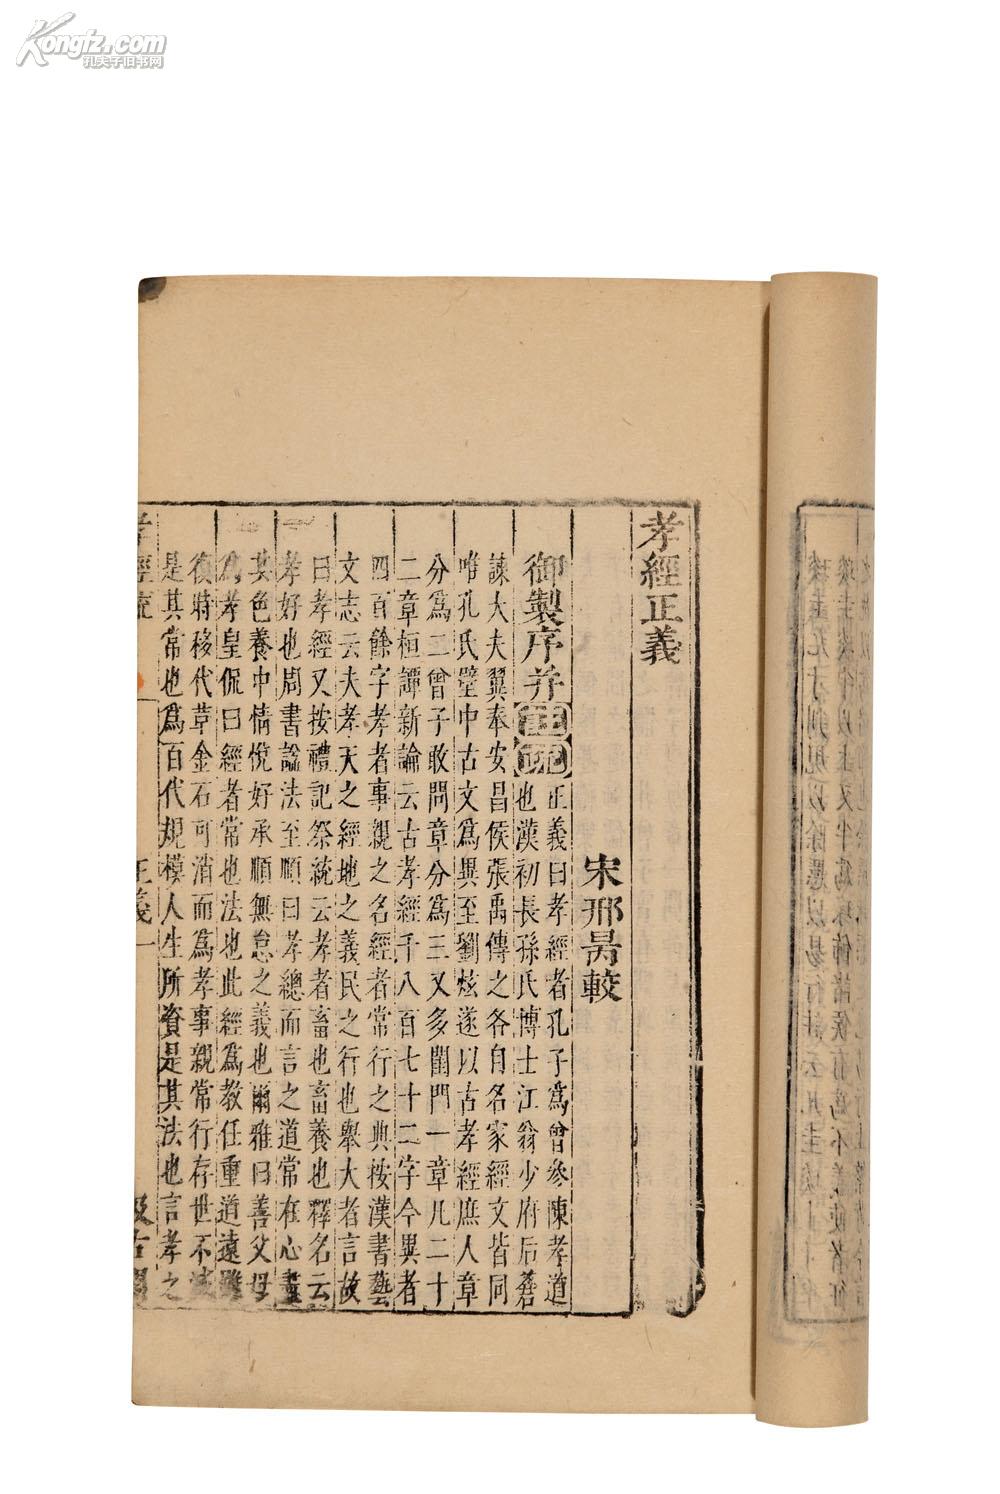 Kongfz.com
孔夫子旧书网
孝經正義
宋邢昺較
御製序并註疏
正義曰孝經者孔子爲曾參陳孝道
也漢初長孫氏博士江翁少府后蒼
諫大夫翼奉安昌侯張禹傳之各自名家經文皆同
唯孔氏壁中古文爲異至劉炫遂以古孝經庶人章
分爲二曾子敢問章分爲三又多閨門一章凡二十
二章桓譚新論云古孝經千八百七十二字今異者
四百餘字孝者事親之名經者常行之典按漢書藝
文志云夫孝天之經地之義民之行也舉大者言故
曰孝經又按禮記祭統云孝者畜也畜養也釋名云
孝好也周書謚法至順曰孝總而言之道常在心盡
其色養中情悅好承順無怠之義也爾雅曰善父母
爲孝皇侃曰經者常也法也此經爲教任重道遠雖
復時移代革金石可消而爲孝事親常行存世不滅
是其常也爲百代規模人生所資是其法也言孝之
孝經疏 正義一 汲古閣